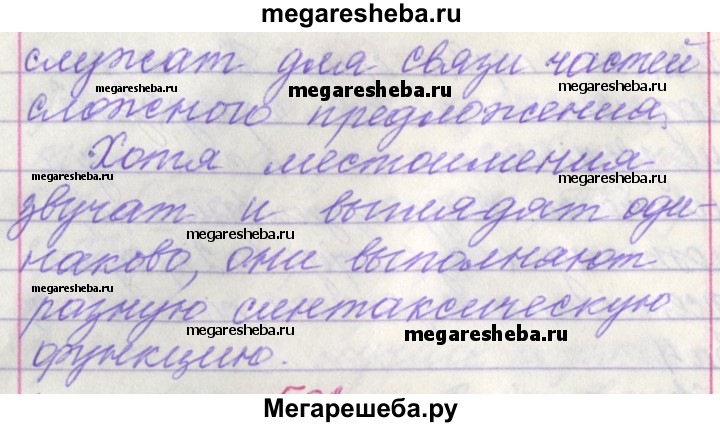 megaresheba.ru
служат для связи частей
megaresheba.ru
megaresheba.ru
megaresheba.ru
сложного предложения.
Хотя местоимения
megaresheba.ru
megaresheba.ru
звучат и выглядят оди-
megaresheba.ru
megaresheba.ru
наково, они выполняют
megaresheba.ru
разную синтаксическую
megaresheba.ru
megaresheba.ru
функцию.
Мегарешеба.ру